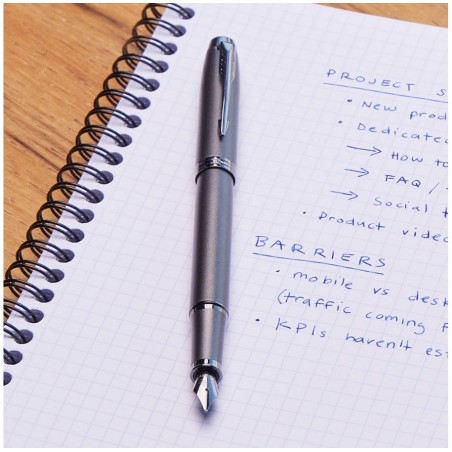 PROJECT S
• New prod
• Dedicated
→ How to
→ FAQ /
→ Social
• Product video
BARRIERS
• mobile vs desk
(traffic coming f
• KPIs haven't est